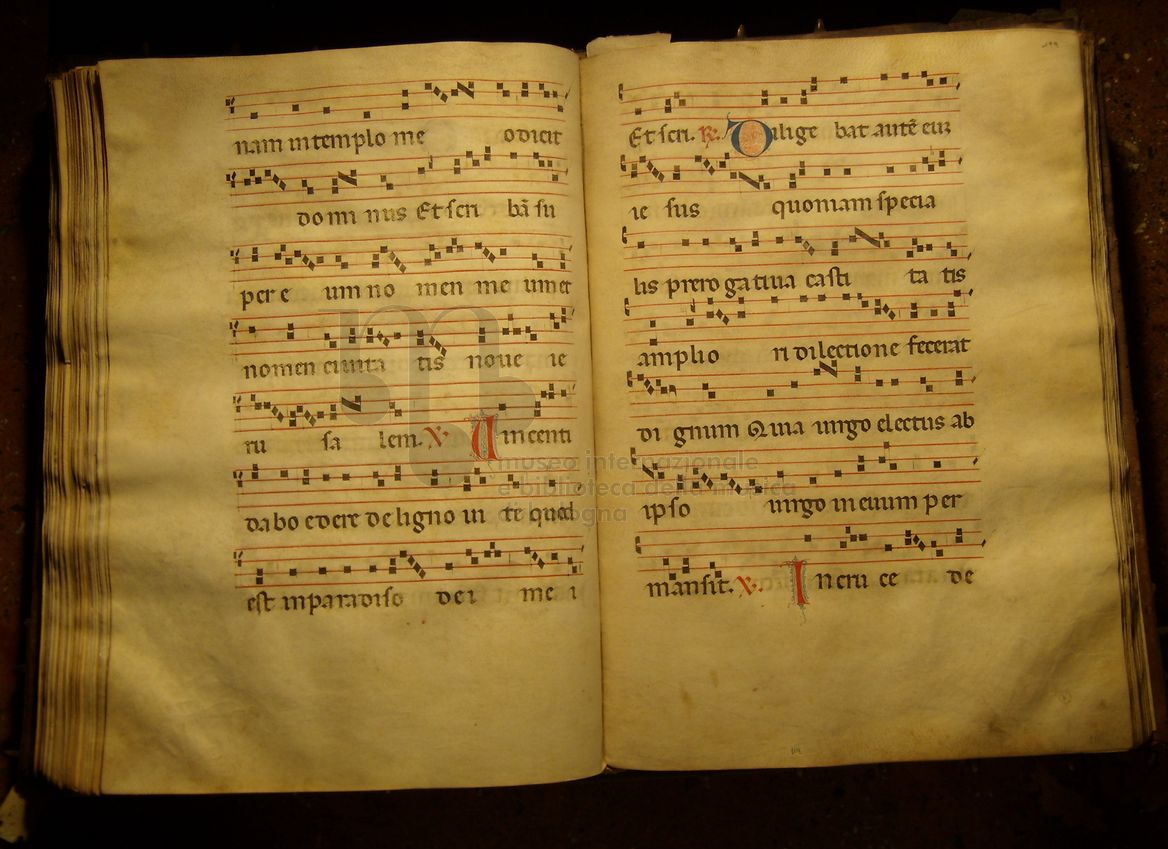 nam in templo me o dicit
do mi nus Et scri bā su
per e um no men me um et
nomen ciuita tis noue ie
ru sa lem. V. Uincenti
dabo edere de ligno ui te quod
est in paradiso de i me i
Et scri. R. Dilige bat autē eu
ie sus quoniam specia
lis prero gatiua casti ta tis
amplio ri dilectione fecerat
di gnum Quia uirgo electus ab
ipso uirgo in euum per
mansit. V. In cru ce de
museo internazionale
e biblioteca della musica
di bologna